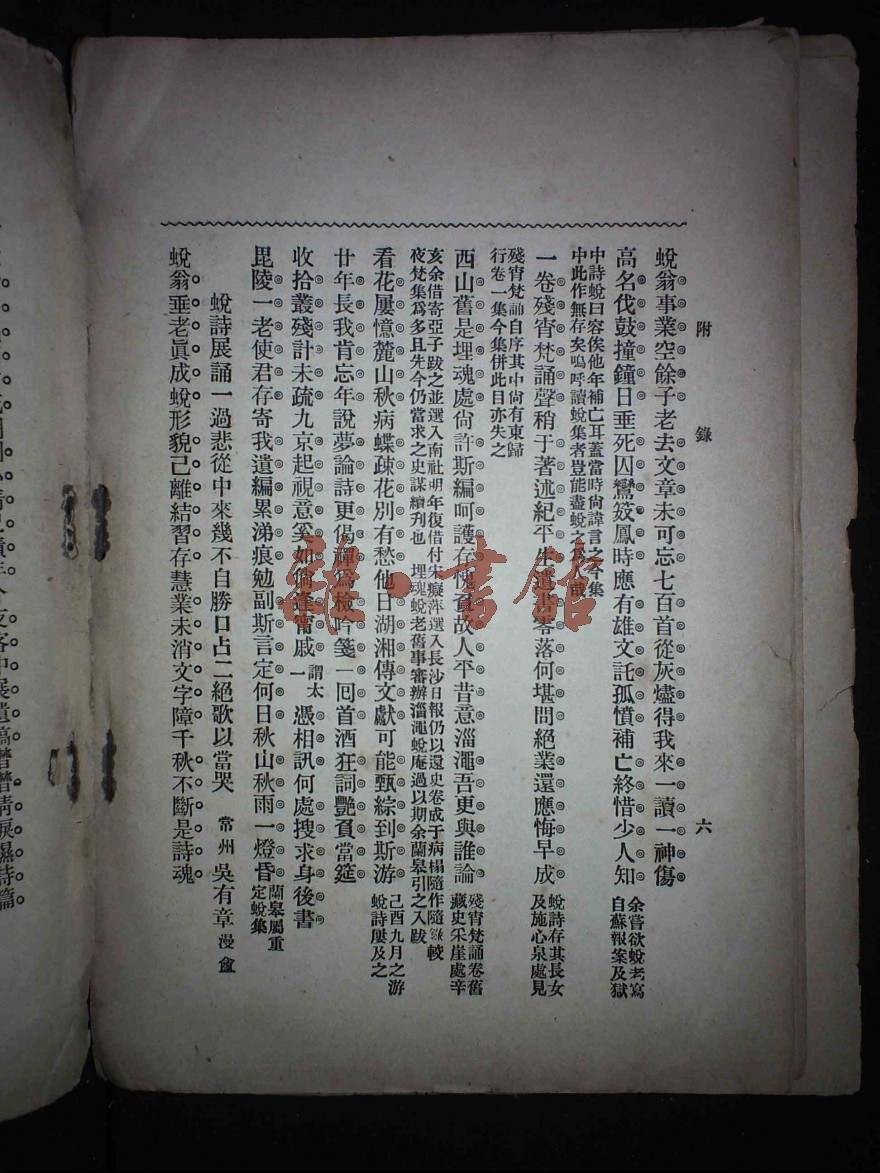 附錄 六
蛻翁事業空餘子老去文章未可忘七百首從灰燼得我來一讀一神傷
余嘗欲蛻老寫
自蘇報案及獄
高名伐鼓撞鐘日垂死囚鸞笯鳳時應有雄文託孤憤補亡終惜少人知
中詩蛻曰容俟他年補亡耳蓋當時尙諱言之今集
中此作無存矣嗚呼讀蛻集者豈能盡蛻之爲人哉
一卷殘宵梵誦聲稍于著述紀平生遺書零落何堪問絕業還應悔早成
蛻詩存其長女
及施心泉處見
殘宵梵誦自序其中尙有東歸
行卷一集今集併此目亦失之
西山舊是埋魂處尙許斯編呵護存愧負故人平昔意淄澠吾更與誰論
殘宵梵誦卷舊
藏史采崖處辛
亥余借寄亞子跋之並選入南社明年復借付宋癡萍選入長沙日報仍以還史卷成于病榻隨作隨錄較
夜梵集爲多且先今仍當求之史謀續刊也 埋魂蛻老舊事審辦淄澠蛻庵過以期余蘭皋引之入跋
看花屢憶麓山秋病蝶疎花別有愁他日湖湘傳文獻可能甄綜到斯游
己酉九月之游
蛻詩屢及之
廿年長我肯忘年說夢論詩更偈禪爲檢吟箋一囘首酒狂詞艷負當筵
收拾叢殘計未疏九京起視意奚如倘逢甯戚
謂太
一
憑相訊何處搜求身後書
毘陵一老使君存寄我遺編累涕痕勉副斯言定何日秋山秋雨一燈昏
蘭皋屬重
定蛻集
蛻詩展誦一過悲從中來幾不自勝口占二絕歌以當哭 常州 吳有章 漫盦
蛻翁垂老眞成蛻形貌已離結習存慧業未消文字障千秋不斷是詩魂
雜·書館